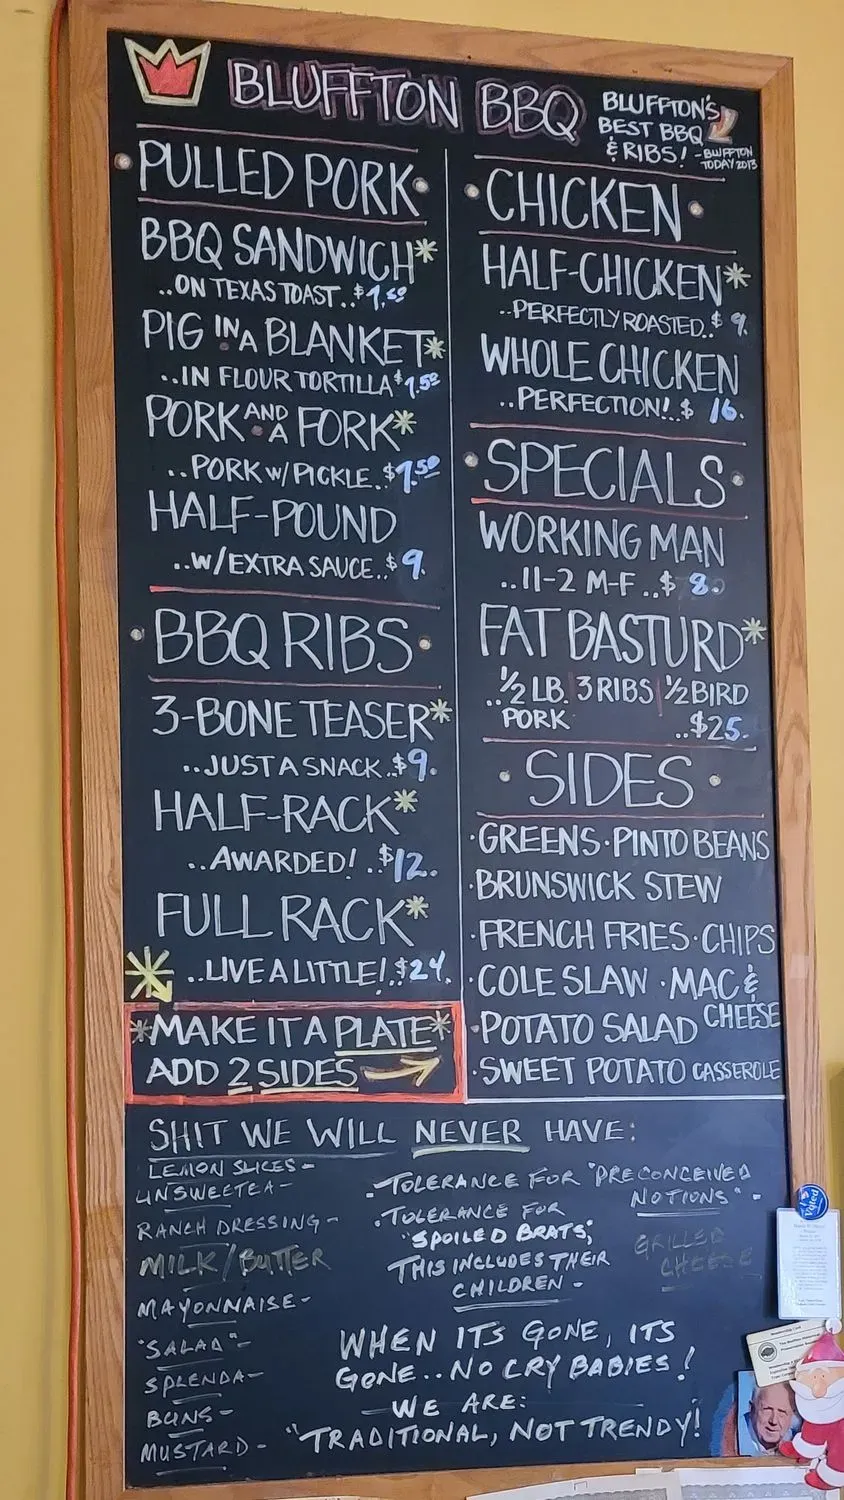 BLUFFTON BBQ
BLUFFTON'S
BEST BBQ
& RIBS! - BLUFFTON
TODAY 2013
PULLED PORK
BBQ SANDWICH*
..ON TEXAS TOAST..$7.50
PIG IN A BLANKET*
..IN FLOUR TORTILLA $7.50
PORK AND A FORK*
..PORK W/ PICKLE..$7.50
HALF-POUND
..W/EXTRA SAUCE..$9.
BBQ RIBS
3-BONE TEASER*
..JUST A SNACK..$9.
HALF-RACK*
..AWARDED!..$12.
FULL RACK*
..LIVE A LITTLE!..$24.
*MAKE IT A PLATE*
ADD 2 SIDES
CHICKEN
HALF-CHICKEN*
..PERFECTLY ROASTED..$9.
WHOLE CHICKEN
..PERFECTION!..$16.
SPECIALS
WORKING MAN
..11-2 M-F..$8.
FAT BASTURD*
..½ LB. 3 RIBS ½ BIRD
PORK ..$25.
SIDES
·GREENS·PINTO BEANS
·BRUNSWICK STEW
·FRENCH FRIES·CHIPS
·COLE SLAW ·MAC &
CHEESE
·POTATO SALAD
·SWEET POTATO CASSEROLE
SHIT WE WILL NEVER HAVE:
LEMON SLICES-
UNSWEETEA-
RANCH DRESSING-
MILK/BUTTER
MAYONNAISE-
"SALAD"-
SPLENDA-
BUNS-
MUSTARD-
·TOLERANCE FOR "PRECONCEIVED
NOTIONS"-
·TOLERANCE FOR
"SPOILED BRATS,"
THIS INCLUDES THEIR
CHILDREN-
GRILLED
CHEESE
WHEN ITS GONE, ITS
GONE..NO CRY BABIES!
WE ARE:
"TRADITIONAL, NOT TRENDY!
Voted